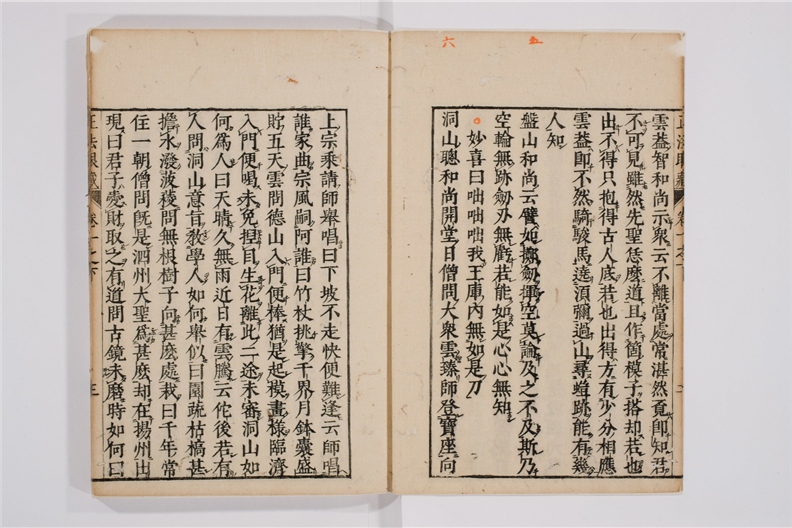 六
五
雲蓋智和尚示衆云不離當處常湛然覓即知君
不可見雖然先聖恁麼道且作箇模子搭却若也
出不得只抱得古人底若也出得方有少分相應
雲蓋即不然騎駿馬遶須彌過山尋蟻跡能有幾
人知
盤山和尚云譬如擲劔揮空莫論及之不及斯乃
空輪無跡劔刃無虧若能如是心心無知
妙喜曰咄咄咄我王庫內無如是刀
洞山聰和尚開堂日僧問大衆雲臻師登寶座向
上宗乘請師舉唱曰下坡不走快便難逢云師唱
誰家曲宗風嗣阿誰曰竹杖挑擎千界月鉢囊盛
貯五天雲問德山入門便棒猶是起模畫樣臨濟
入門便喝未免捏目生花離此二途未審洞山如
何爲人曰天晴久無雨近日有雲騰云佗後若有
人問洞山意旨敎學人如何舉似曰園蔬枯槁甚
擔水潑菠稜問無根樹子向甚麼處栽曰千年常
住一朝僧問旣是泗州大聖爲甚麼却在揚州出
現曰君子愛財取之有道問古鏡未磨時如何曰
正法眼藏 卷一之下 三